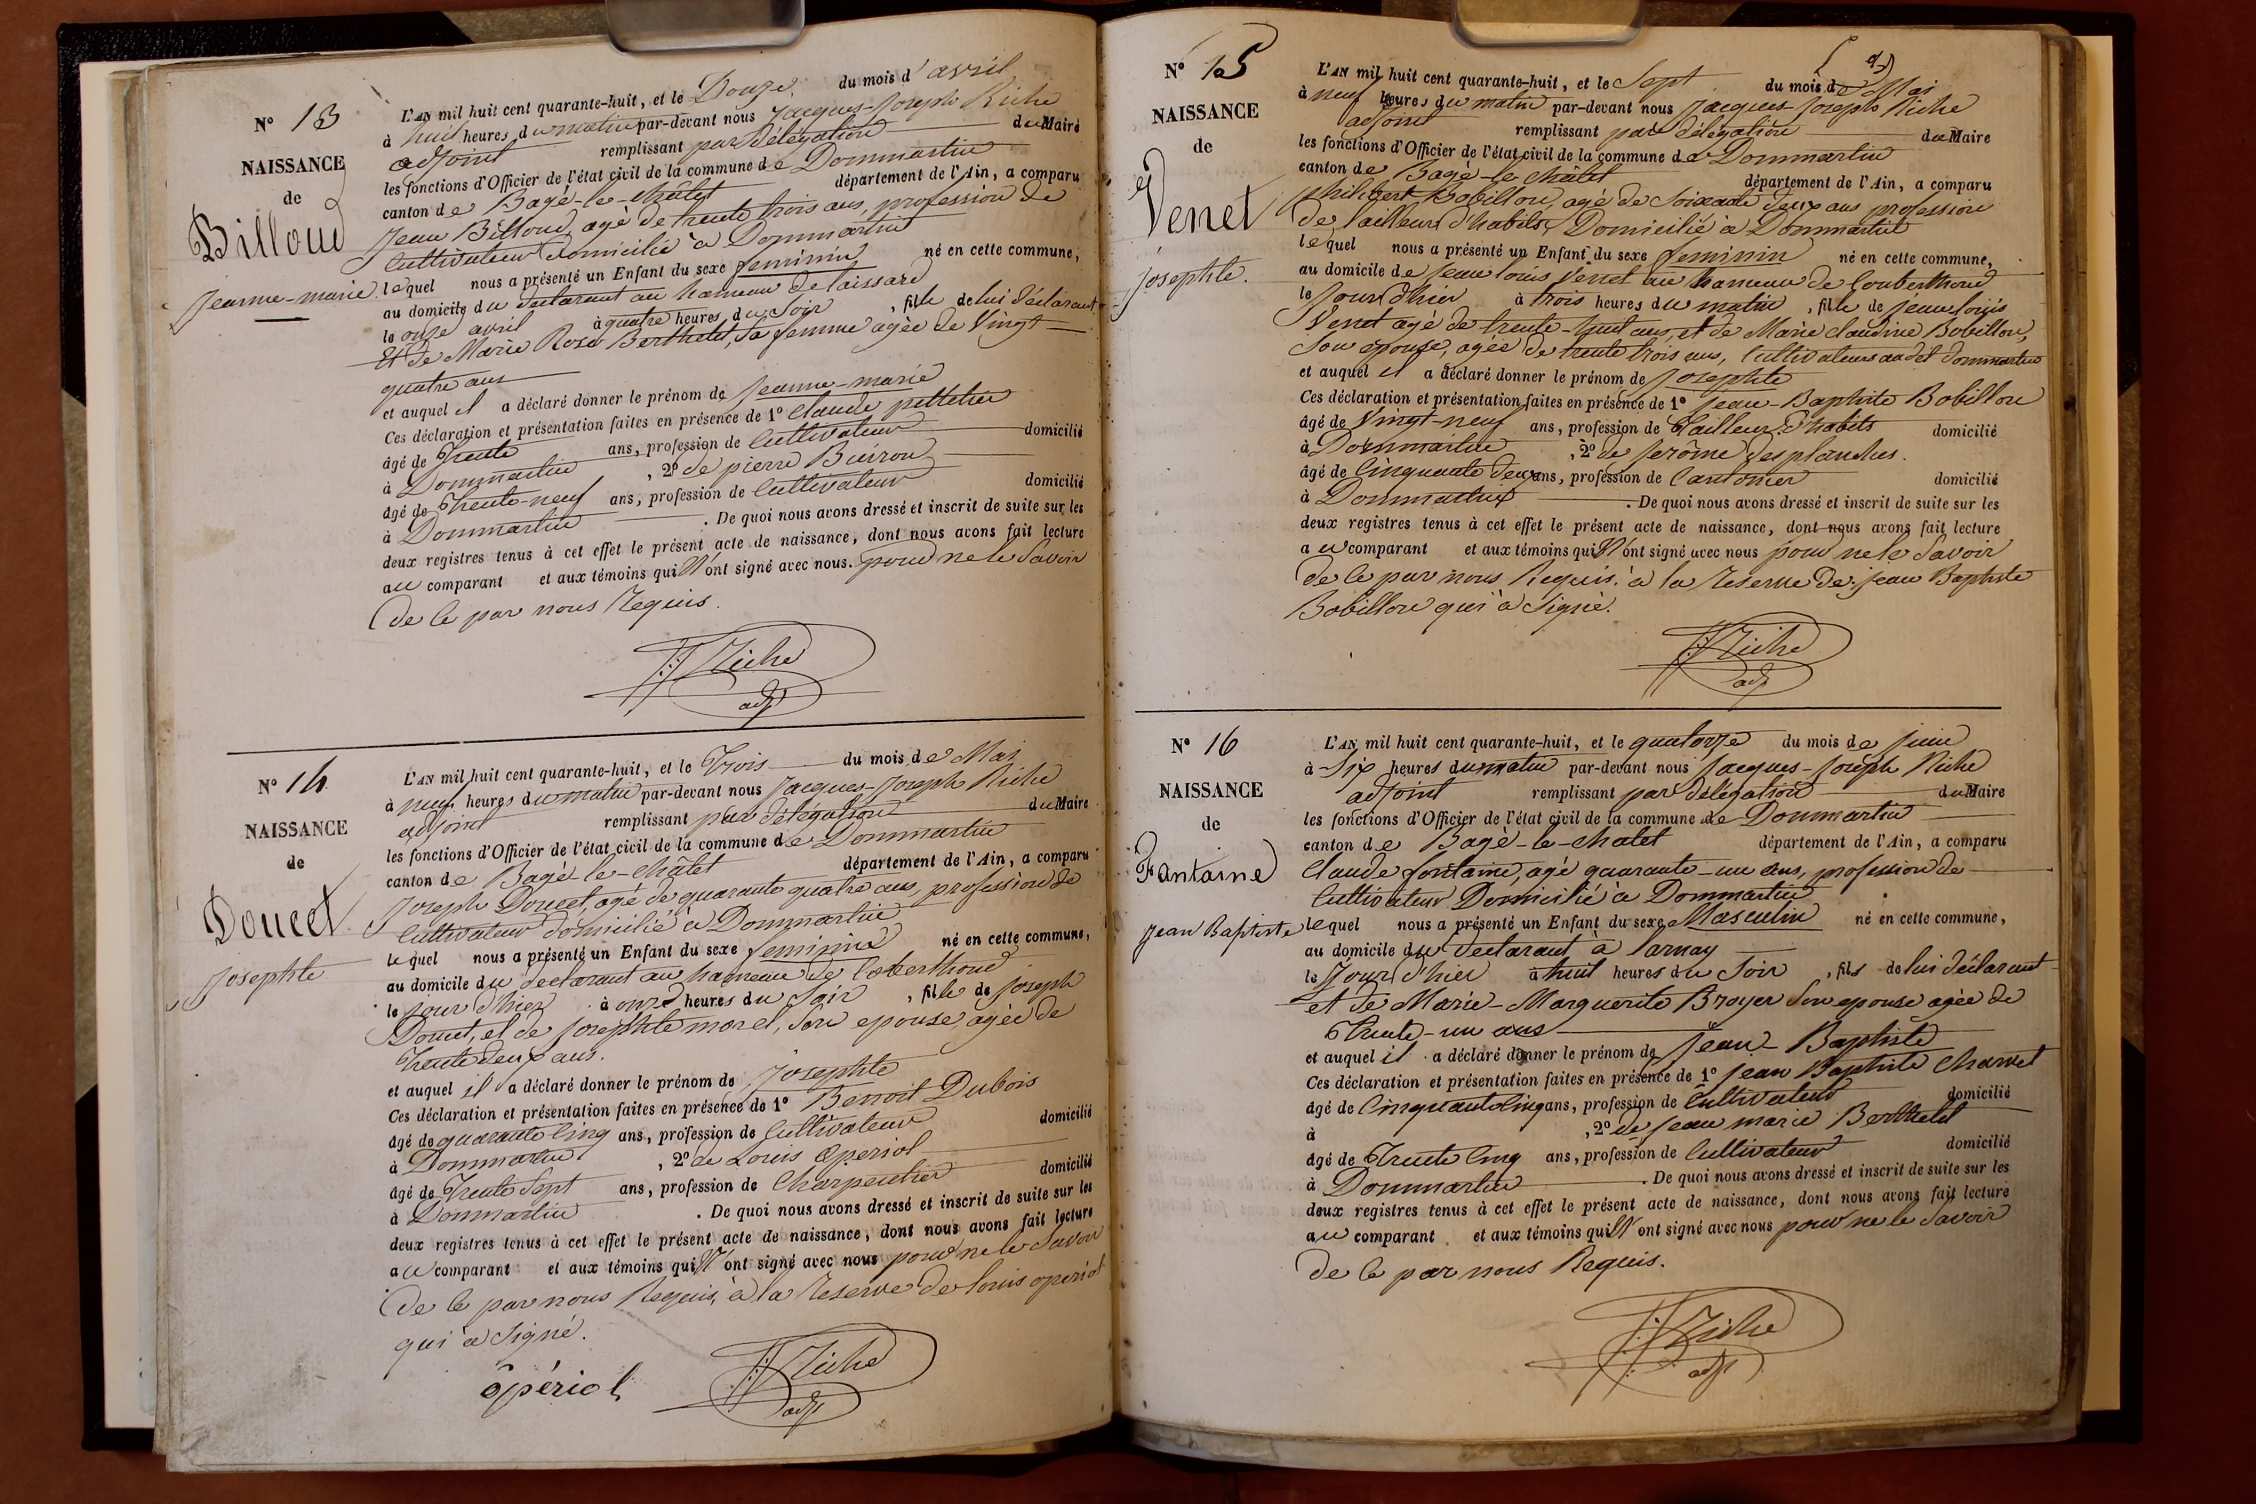 N° 13
NAISSANCE
de
Billoud
Jeanne-marie
L'AN mil huit cent quarante-huit, et le Douze du mois d'avril
à huit heures du matin par-devant nous Jacques-Joseph Riche
adjoint remplissant par délégation du Maire
les fonctions d'Officier de l'état civil de la commune de Dommartin
canton de Bagé-le-châtel département de l'Ain, a comparu
Jean Billoud, agé de trente trois ans, profession de
Cultivateur domicilié à Dommartin
lequel nous a présenté un Enfant du sexe feminin né en cette commune,
au domicile du declarant au hameau de laissard
le onze avril à quatre heures du Soir, fille de lui déclarant
Et de Marie Rose Berthelet, Sa femme agée de Vingt-
quatre ans
et auquel il a déclaré donner le prénom de Jeanne-marie
Ces déclaration et présentation faites en présence de 1° Claude pelletier
âgé de Trente ans, profession de Cultivateur domicilié
à Dommartin, 2° de pierre Burron
âgé de Trente-neuf ans, profession de Cultivateur domicilié
à Dommartin. De quoi nous avons dressé et inscrit de suite sur les
deux registres tenus à cet effet le présent acte de naissance, dont nous avons fait lecture
au comparant et aux témoins qui N'ont signé avec nous. pour ne le Savoir
de ce par nous Requis.
JJ Riche
adj
N° 14
NAISSANCE
de
Doucet
Josephte
L'AN mil huit cent quarante-huit, et le Trois du mois de Mai
à neuf heures du matin par-devant nous Jacques-Joseph Riche
adjoint remplissant par délégation du Maire
les fonctions d'Officier de l'état civil de la commune de Dommartin
canton de Bagé-le-châtel département de l'Ain, a comparu
Joseph Doucet, agé de quarante quatre ans, profession de
Cultivateur domicilié à Dommartin
lequel nous a présenté un Enfant du sexe feminin né en cette commune,
au domicile du declarant au hameau de Coberthoud
le jour d'hier à onze heures du Soir, fille de Joseph
Doucet, et de Josephte morel, Son epouse, agée de
Trente deux ans.
et auquel il a déclaré donner le prénom de Josephte
Ces déclaration et présentation faites en présence de 1° Benoit Dubois
âgé de quarante Cinq ans, profession de Cultivateur domicilié
à Dommartin, 2° de Louis Operiol
âgé de Trente Sept ans, profession de Charpentier domicilié
à Dommartin. De quoi nous avons dressé et inscrit de suite sur les
deux registres tenus à cet effet le présent acte de naissance, dont nous avons fait lecture
au comparant et aux témoins qui N'ont signé avec nous pour ne le Savoir
de ce par nous Requis, à la Reserve de Louis operiol
qui a Signé.
opériol
JJ Riche
adj
N° 15
NAISSANCE
de
Venet
Josephte.
L'AN mil huit cent quarante-huit, et le Sept du mois de Mai
à neuf heures du matin par-devant nous Jacques-Joseph Riche
adjoint remplissant par délégation du Maire
les fonctions d'Officier de l'état civil de la commune de Dommartin
canton de Bagé-le-châtel département de l'Ain, a comparu
philibert Bobillon, agé de Soixante deux ans profession
de Tailleur d'habits, Domicilié à Dommartin
lequel nous a présenté un Enfant du sexe feminin né en cette commune,
au domicile de Jean louis Venet au hameau de Couberthoud
le Jour d'hier à trois heures du matin, fille de Jean louis
Venet agé de trente-huit ans, et de Marie Claudine Bobillon,
Son epouse, agée de trente trois ans, Cultivateurs audit Dommartin
et auquel il a déclaré donner le prénom de Josephte
Ces déclaration et présentation faites en présence de 1° Jean-Baptiste Bobillon
âgé de Vingt-neuf ans, profession de Tailleur d'habits domicilié
à Dommartin, 2° de Jerôme Desplanches.
âgé de Cinquante deux ans, profession de Cantonier domicilié
à Dommartin. De quoi nous avons dressé et inscrit de suite sur les
deux registres tenus à cet effet le présent acte de naissance, dont nous avons fait lecture
au comparant et aux témoins qui N'ont signé avec nous pour ne le Savoir
de ce par nous Requis, à la Reserve de Jean Baptiste
Bobillon qui a Signé.
JJ Riche
adj
N° 16
NAISSANCE
de
Fantaine
Jean Baptiste
L'AN mil huit cent quarante-huit, et le quatorze du mois de juin
à Six heures du matin par-devant nous Jacques-Joseph Riche
adjoint remplissant par délégation du Maire
les fonctions d'Officier de l'état civil de la commune de Dommartin
canton de Bagé-le-chatel département de l'Ain, a comparu
Claude fontaine, agé quarante-un ans, profession de
Cultivateur Domicilié à Dommartin
lequel nous a présenté un Enfant du sexe Masculin né en cette commune,
au domicile du declarant à larnay
le Jour d'hier à huit heures du Soir, fils de lui déclarant
et de Marie-Marguerite Broyer Son epouse agée de
Trente-un ans
et auquel il a déclaré donner le prénom de Jean-Baptiste
Ces déclaration et présentation faites en présence de 1° Jean Baptiste Charvet
âgé de Cinquante Cinq ans, profession de Cultivateur domicilié
à , 2° de Jean marie Berthelet
âgé de Trente Cinq ans, profession de Cultivateur domicilié
à Dommartin. De quoi nous avons dressé et inscrit de suite sur les
deux registres tenus à cet effet le présent acte de naissance, dont nous avons fait lecture
au comparant et aux témoins qui N'ont signé avec nous pour ne le Savoir
de ce par nous Requis.
JJ Riche
adj